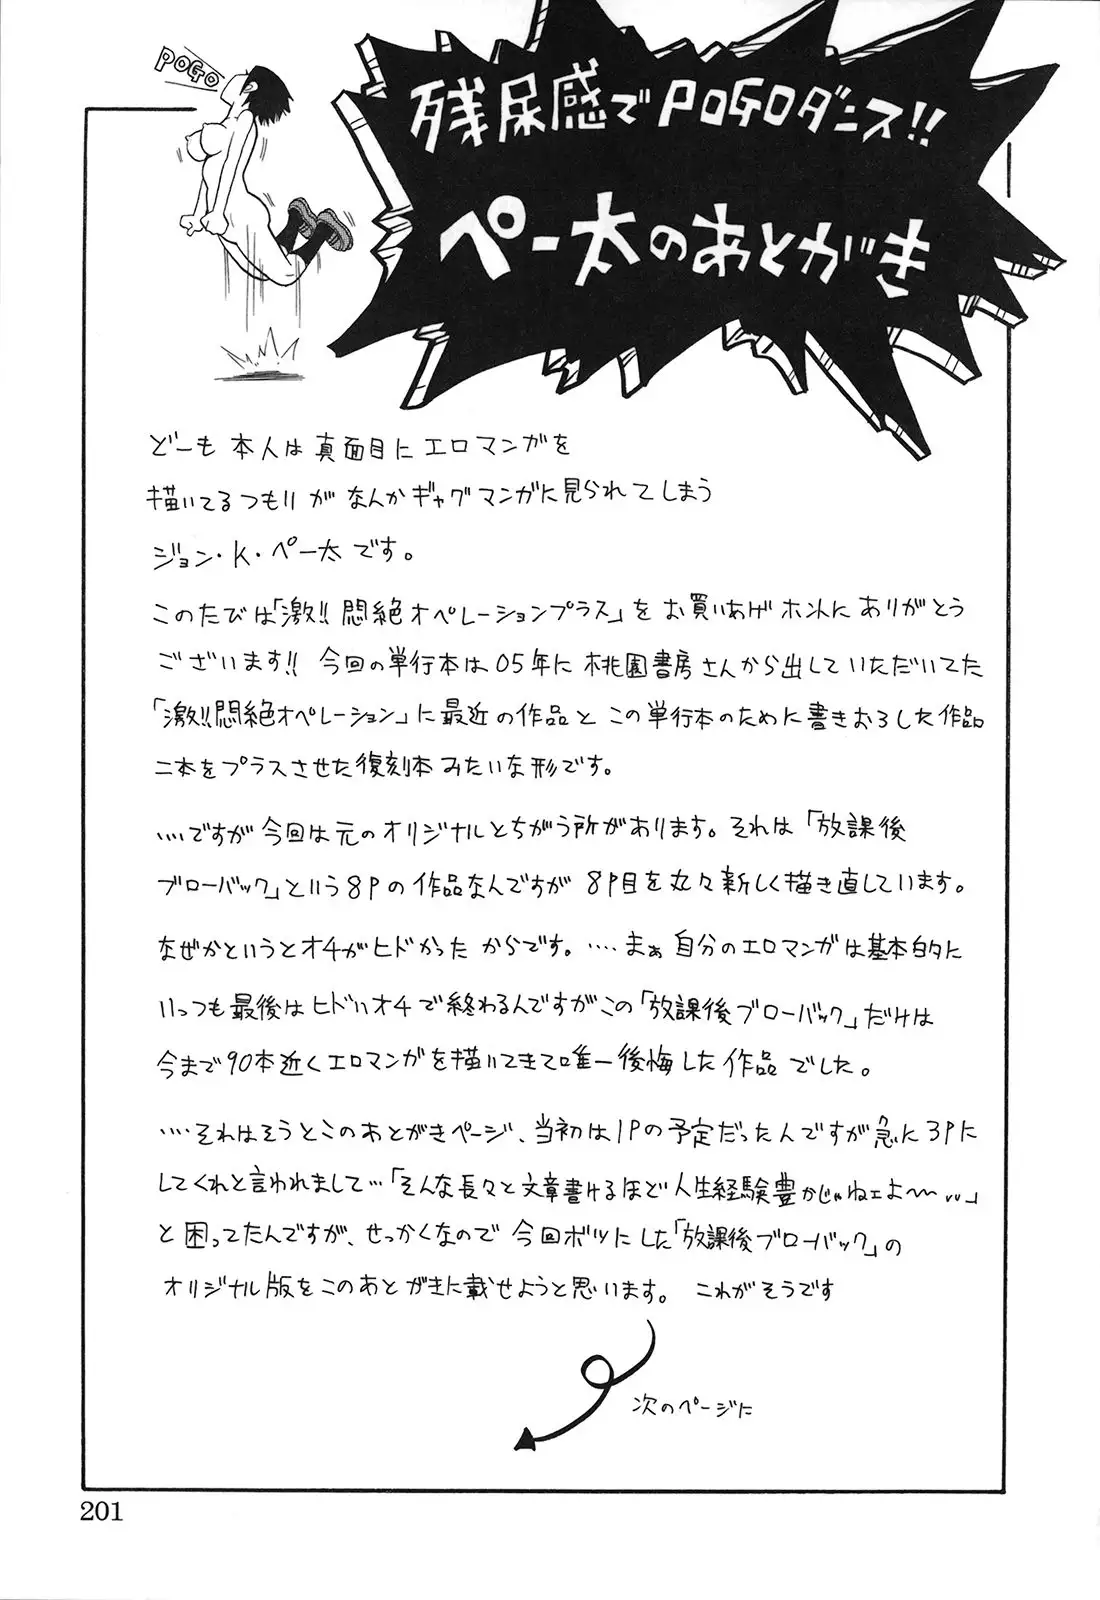 POGO
残尿感でPOGOダンス!!
ペー太のあとがき
どーも 本人は真面目にエロマンガを
描いてるつもりが なんかギャグマンガに見られてしまう
ジョン・K・ペー太です。
このたびは「激!! 悶絶オペレーションプラス」を お買いあげ ホントに ありがとう
ございます!! 今回の単行本は 05年に 桃園書房さんから出していただいてた
「激!!悶絶オペレーション」に 最近の作品と この単行本のために書きおろした作品
二本をプラスさせた復刻本みたいな形です。
....ですが今回は元のオリジナルとちがう所があります。それは「放課後
ブローバック」という8Pの作品なんですが 8P目を丸々新しく描き直しています。
なぜかというとオチがヒドかった からです。....まぁ自分のエロマンガは基本的に
いっつも最後はヒドいオチで終わるんですがこの「放課後ブローバック」だけは
今まで90本近くエロマンガを描いてきて唯一後悔した作品でした。
....それはそうとこのあとがきページ、当初は1Pの予定だったんですが急に3Pに
してくれと言われまして…「そんな長々と文章書けるほど人生経験豊かじゃねェよ〜...」
と困ってたんですが、せっかくなので今回ボツにした「放課後ブローバック」の
オリジナル版をこのあとがきに載せようと思います。 これがそうです
次のページに
201